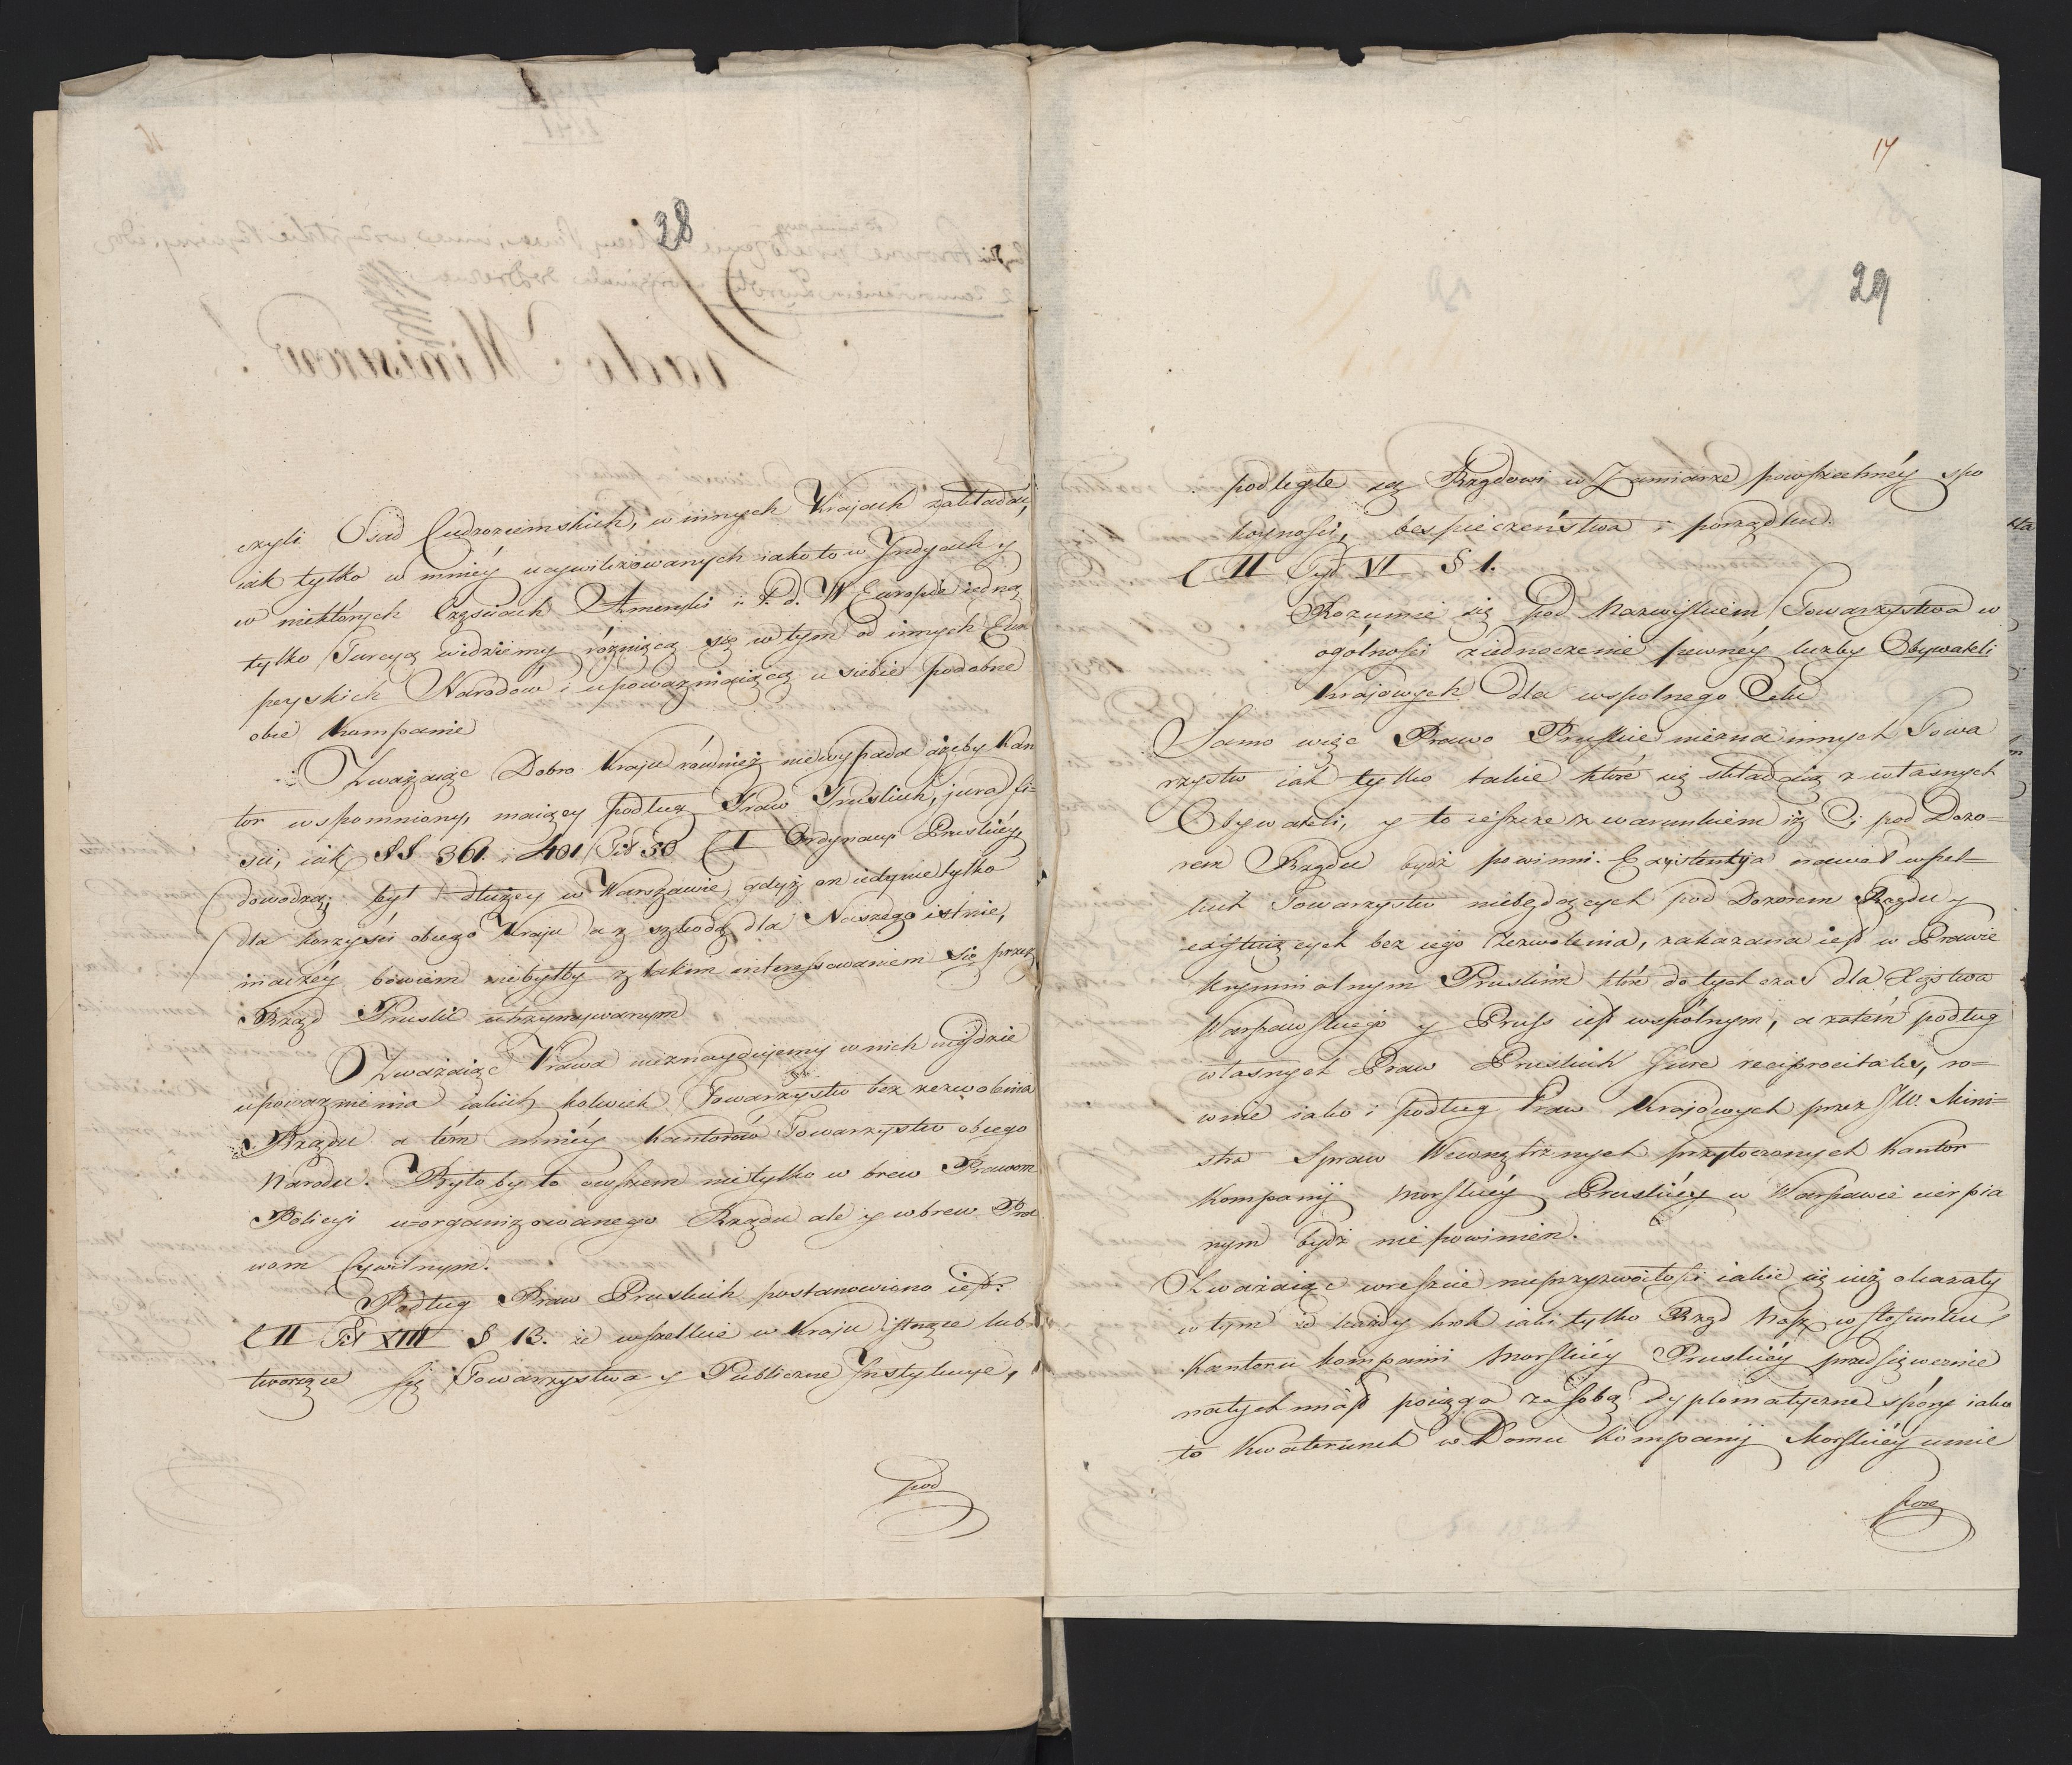 28
czyli Osad Cudzoziemskich, w innych Krajach zakładać,
iak tylko w mniéy ucywilizowanych iako to w Jndyach y
w niektórych Częściach Ameryki i. t. d. W Europie iedną
tylko Turcyą widziemy różniącą się w tym od innych Euro
peyskich Narodów i upoważniaiącą u siebie podobne
obce Kompanie
Zważaiąc Dobro Kraju również niewypada ażeby Kan
tor wspomniony, maiący podług Praw Pruskich, jura fi-
sci, iak §§ 361. i 401 Tit 50 C I Ordynacyi Pruskiéy
dowodzą, był dłużey w Warszawie, gdyż on iedynie tylko
dla korzyści obcego Kraju a z szkodą dla Naszego istnie,
inaczéy bowiem niebyłby z takim interessowaniem się przez
Rząd Pruski utrzymywanym
Zważaiąc Prawa nieznayduiemy w nich nigdzie
upoważnienia iakich kolwiek Towarzystw bez zezwolenia
Rządu a tém mniéy Kantorów Towarzystw obcego
Narodu. Byłoby to owszem nietylko w brew Prawom
Policyi uorganizowanego Rządu ale y wbrew Pra
wom Cywilnym.
Podług Praw Pruskich postanowiono iest:
C II Tit XIII § 13. że wszelkie w Kraju istnące lub
tworzące się Towarzystwa y Publiczne Jnstytucye,
pod
17
29
podległe są Rządowi w Zamiarze powszechnéy spo
koyności, bespieczeństwa i porządku.
C II Tyt VI § 1.
Rozumie się pod Nazwiskiem Towarzystwa w
ogólności ziednoczenie pewnéy liczby Obywateli
Krajowych dla wspolnego Celu
Samo więc Prawo Pruskie niezna innych Towa
rzystw iak tylko takie które się składaią z własnych
Obywateli, y to ieszcze z warunkiem iż Ci pod Dozo-
rem Rządu bydź powinni. Exystentyja nawet wszel-
kich Towarzystw niebędących pod Dozorem Rządu y
exystuiących bez iego zezwolenia, zakazana iest w Prawie
Kryminalnym Pruskim które dotychczas dla Xięstwa
Warszawskiego y Pruss iest wspólnym, a zatém podług
własnych Praw Pruskich Jure reciprocitatis, ro-
wnie iako i podług Praw Krajowych przez JW. Mini-
stra Spraw Wewnętrznych przytoczonych Kantor
Kompanij Morskiéy Pruskiéy w Warszawie cierpia
nym bydź nie powinien.
Zważaiąc wreszcie nieprzyzwoitości iakie się iuż okazały
w tym że każdy krok iaki tylko Rząd Nasz w stosunku
Kantoru Kompanii Morskiéy Pruskiéy przedsięweźmie
natychmiast pociąga za sobą dyplomatyczne spory iako
to Kwaterunek w Domu Kompanij Morskiéy umie